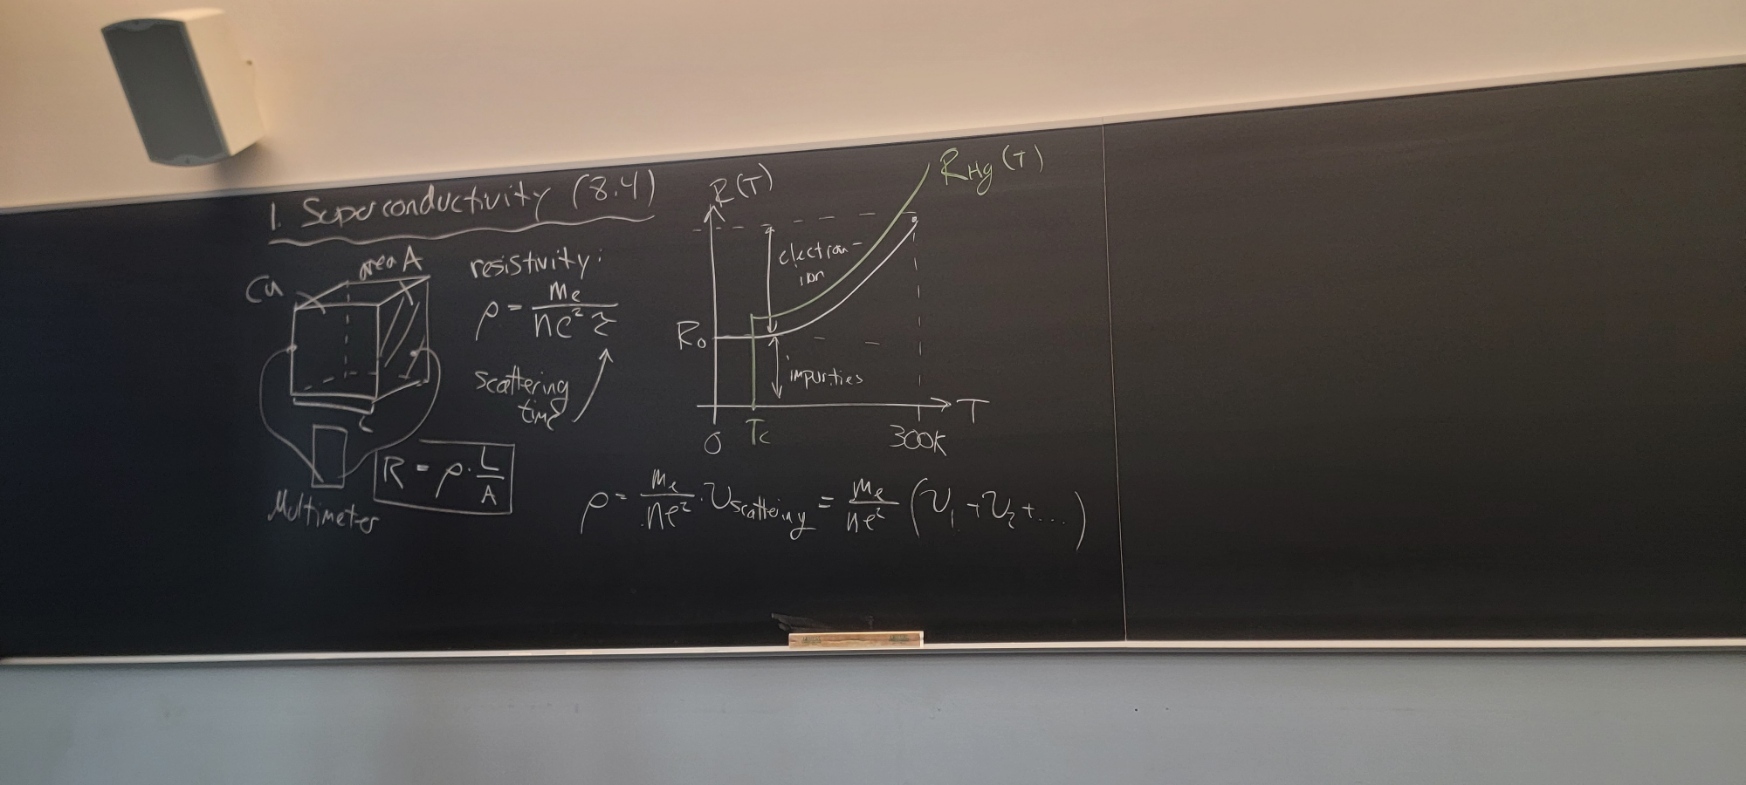 1. Superconductivity (8.4)
Cu
area A
L
Multimeter
R = ρ · L/A
resistivity:
ρ = me/ne²τ
scattering
time
R(T)
RHg(T)
electron-
ion
R₀
impurties
0
Tc
300K
T
ρ = me/ne² · νscattering = me/ne² (ν₁ + ν₂ + ...)